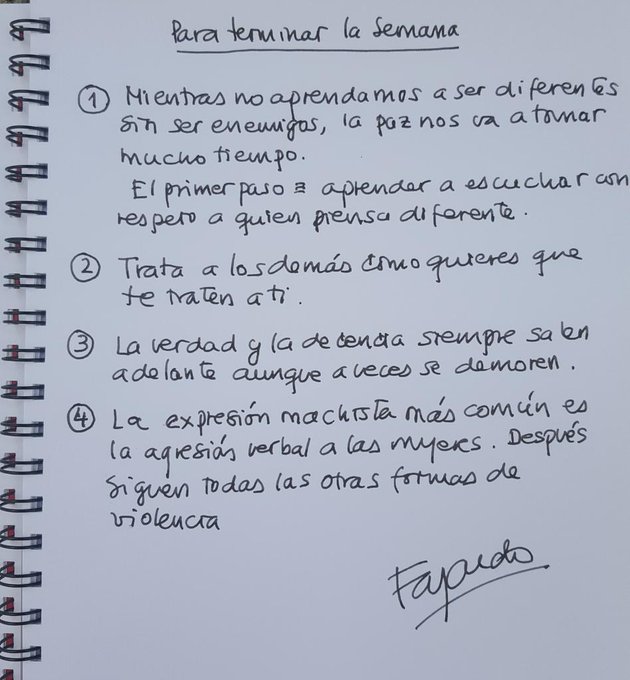 Para terminar la semana
① Mientras no aprendamos a ser diferentes
sin ser enemigos, la paz nos va a tomar
mucho tiempo.
El primer paso = aprender a escuchar con
respeto a quien piensa diferente.
② Trata a los demás como quieres que
te traten a ti.
③ La verdad y la decencia siempre salen
adelante aunque a veces se demoren.
④ La expresión machista más común es
la agresión verbal a las mujeres. Después
siguen todas las otras formas de
violencia
Fajardo